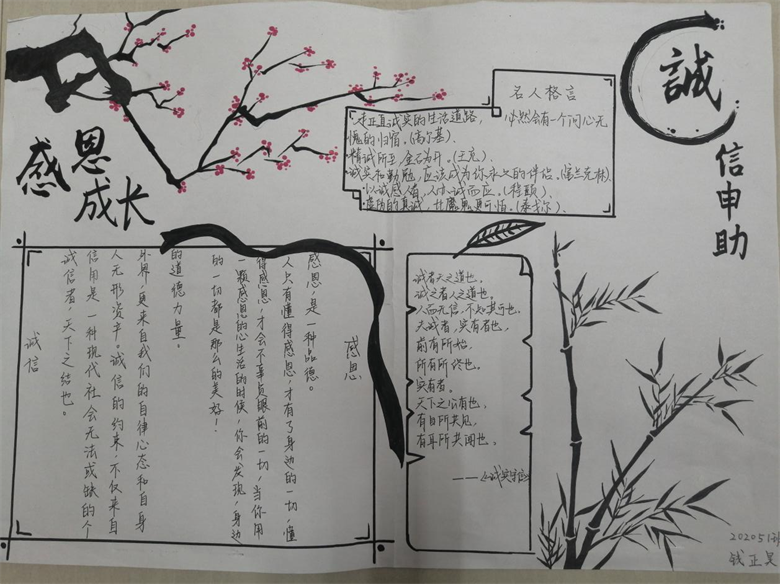 感恩
成长
誠
信申助
名人格言
走正直诚实的生活道路，必然会有一个问心无
愧的归宿。(高尔基)、
精诚所至，金石为开。(王充)、
诚实和勤勉，应该成为你永久的伴侣。(富兰克林)
以诚感人者，人亦诚而应。(程颐)、
感恩
感恩，是一种品德。
人只有懂得感恩，才有了身边的一切，懂
得感恩，才会不辜负眼前的一切，当你用
一颗感恩的心生活的时候，你会发现，身边
的一切都是那么的美好！
的道德力量。
外界，更来自我们的自律心态和自身
人无形资产。诚信的约束，不仅来自
信用是一种现代社会无法或缺的个
诚信者，天下之结也。
诚信
诚者天之道也，
诚之者人之道也。
人而无信，不知其可也。
夫诚者，实有者也，
前有所始，
所有所终也。
实有者。
天下之公有也，
有目所共见，
有耳所共闻也。
钱正昊